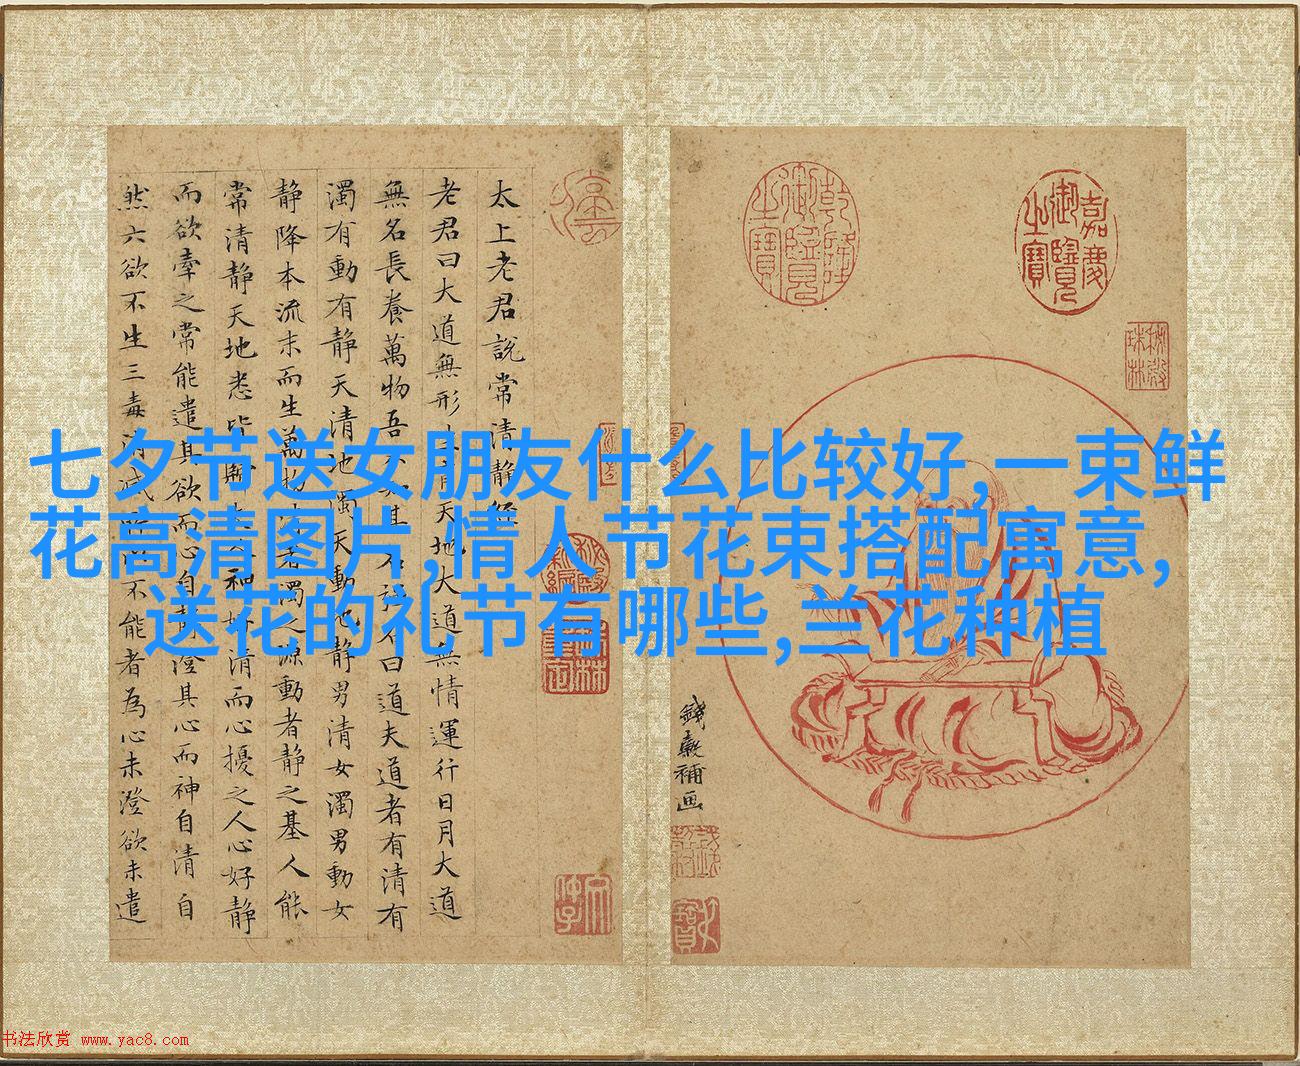 七夕节送女朋友什么比较好,一束鲜
花高清图片,情人节花束搭配寓意,
送花的礼节有哪些,兰花种植
太上老君說常清静經
老君曰大道無形生育天地大道無情運行日月大道
無名長養萬物吾不知其名强名曰道夫道者有清有
濁有動有静天清地濁天動地静男清女濁男動女
静降本流末而生萬物清者濁之源動者静之基人能
常清静天地悉皆歸好清而心擾之人心好静
而欲牽之常能遣其欲而心自静澄其心而神自清自
然六欲不生三毒消滅所以不能者為心未澄欲未遣
乾隆御覽之寶
嘉慶御覽之寶
秘殿珠林
秘殿新編
珠林重定
錢穀補画
书法欣赏 www.yac8.com